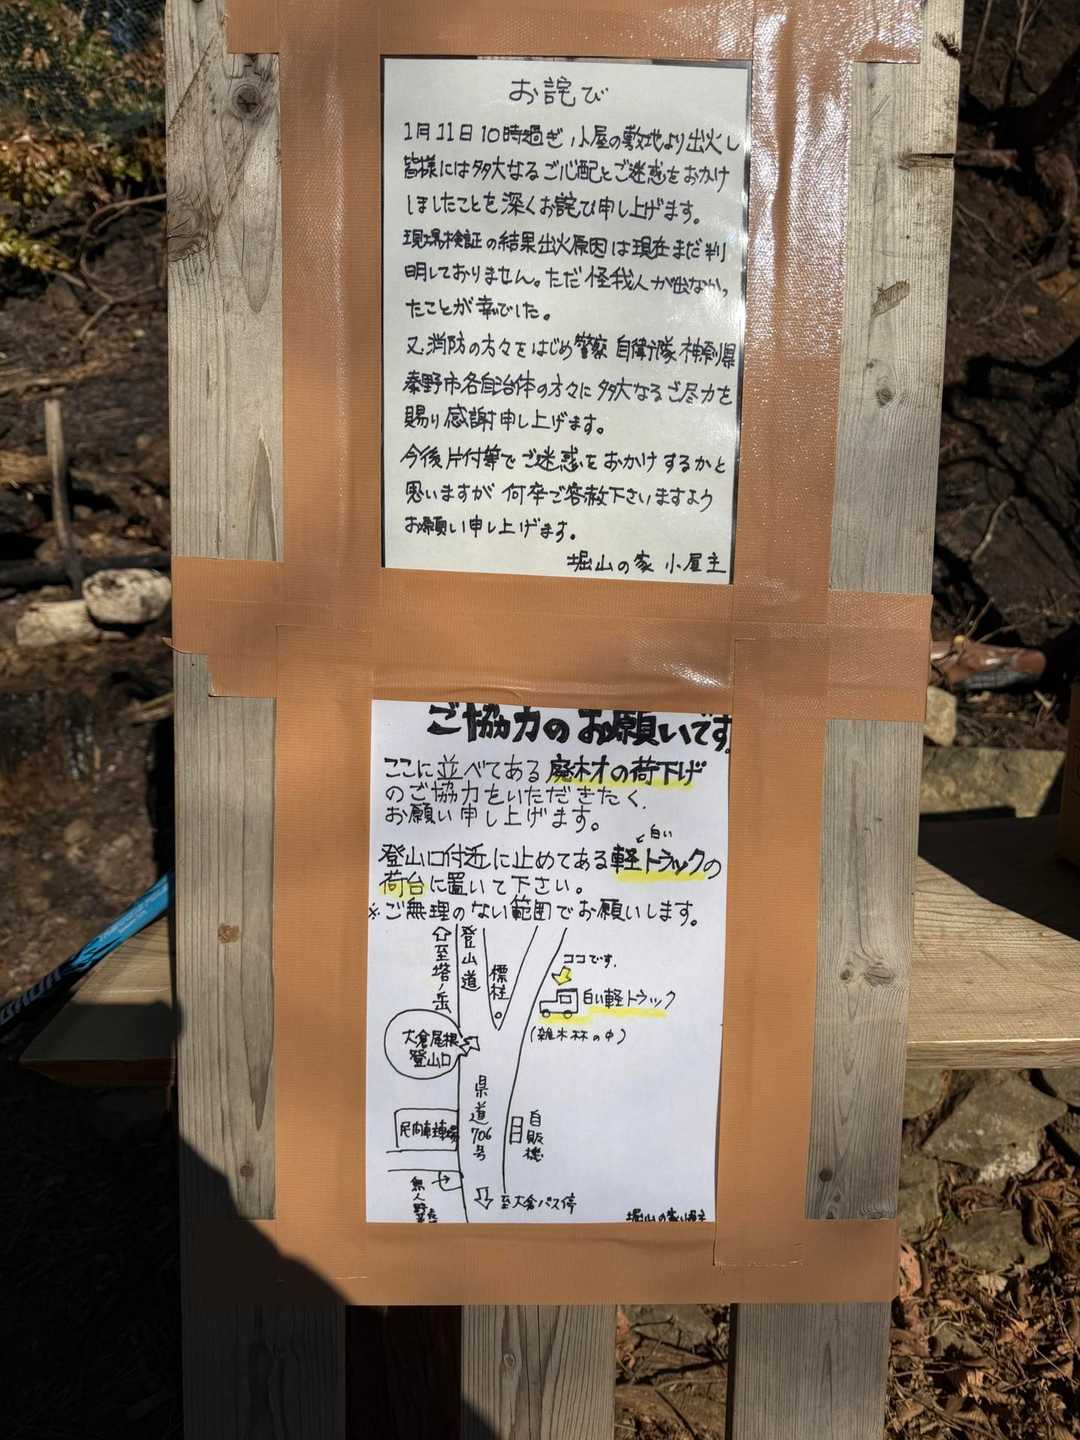 お詫び
1月11日10時過ぎ、小屋の敷地より出火し
皆様には多大なるご心配とご迷惑をおかけ
しましたことを深くお詫び申し上げます。
現場検証の結果出火原因は現在まだ判
明しておりません。ただ怪我人が出なかっ
たことが幸でした。
又、消防の方々をはじめ警察 自衛隊 神奈川県
秦野市各自治体の方々に多大なるご尽力を
賜り感謝申し上げます。
今後片付等でご迷惑をおかけするかと
思いますが 何卒ご容赦下さいますよう
お願い申し上げます。
堀山の家 小屋主
ご協力のお願いです
ここに並べてある廃材の荷下げ
のご協力をいただきたく、
お願い申し上げます。
白い
登山口付近に止めてある軽トラックの
荷台に置いて下さい。
※ご無理のない範囲でお願いします。
至塔ノ岳
登山道
標柱
ココです。
白い軽トラック
(雑木林の中)
大倉尾根
登山口
県道706号
自販機
無人野菜
至大倉バス停
堀山の家小屋主